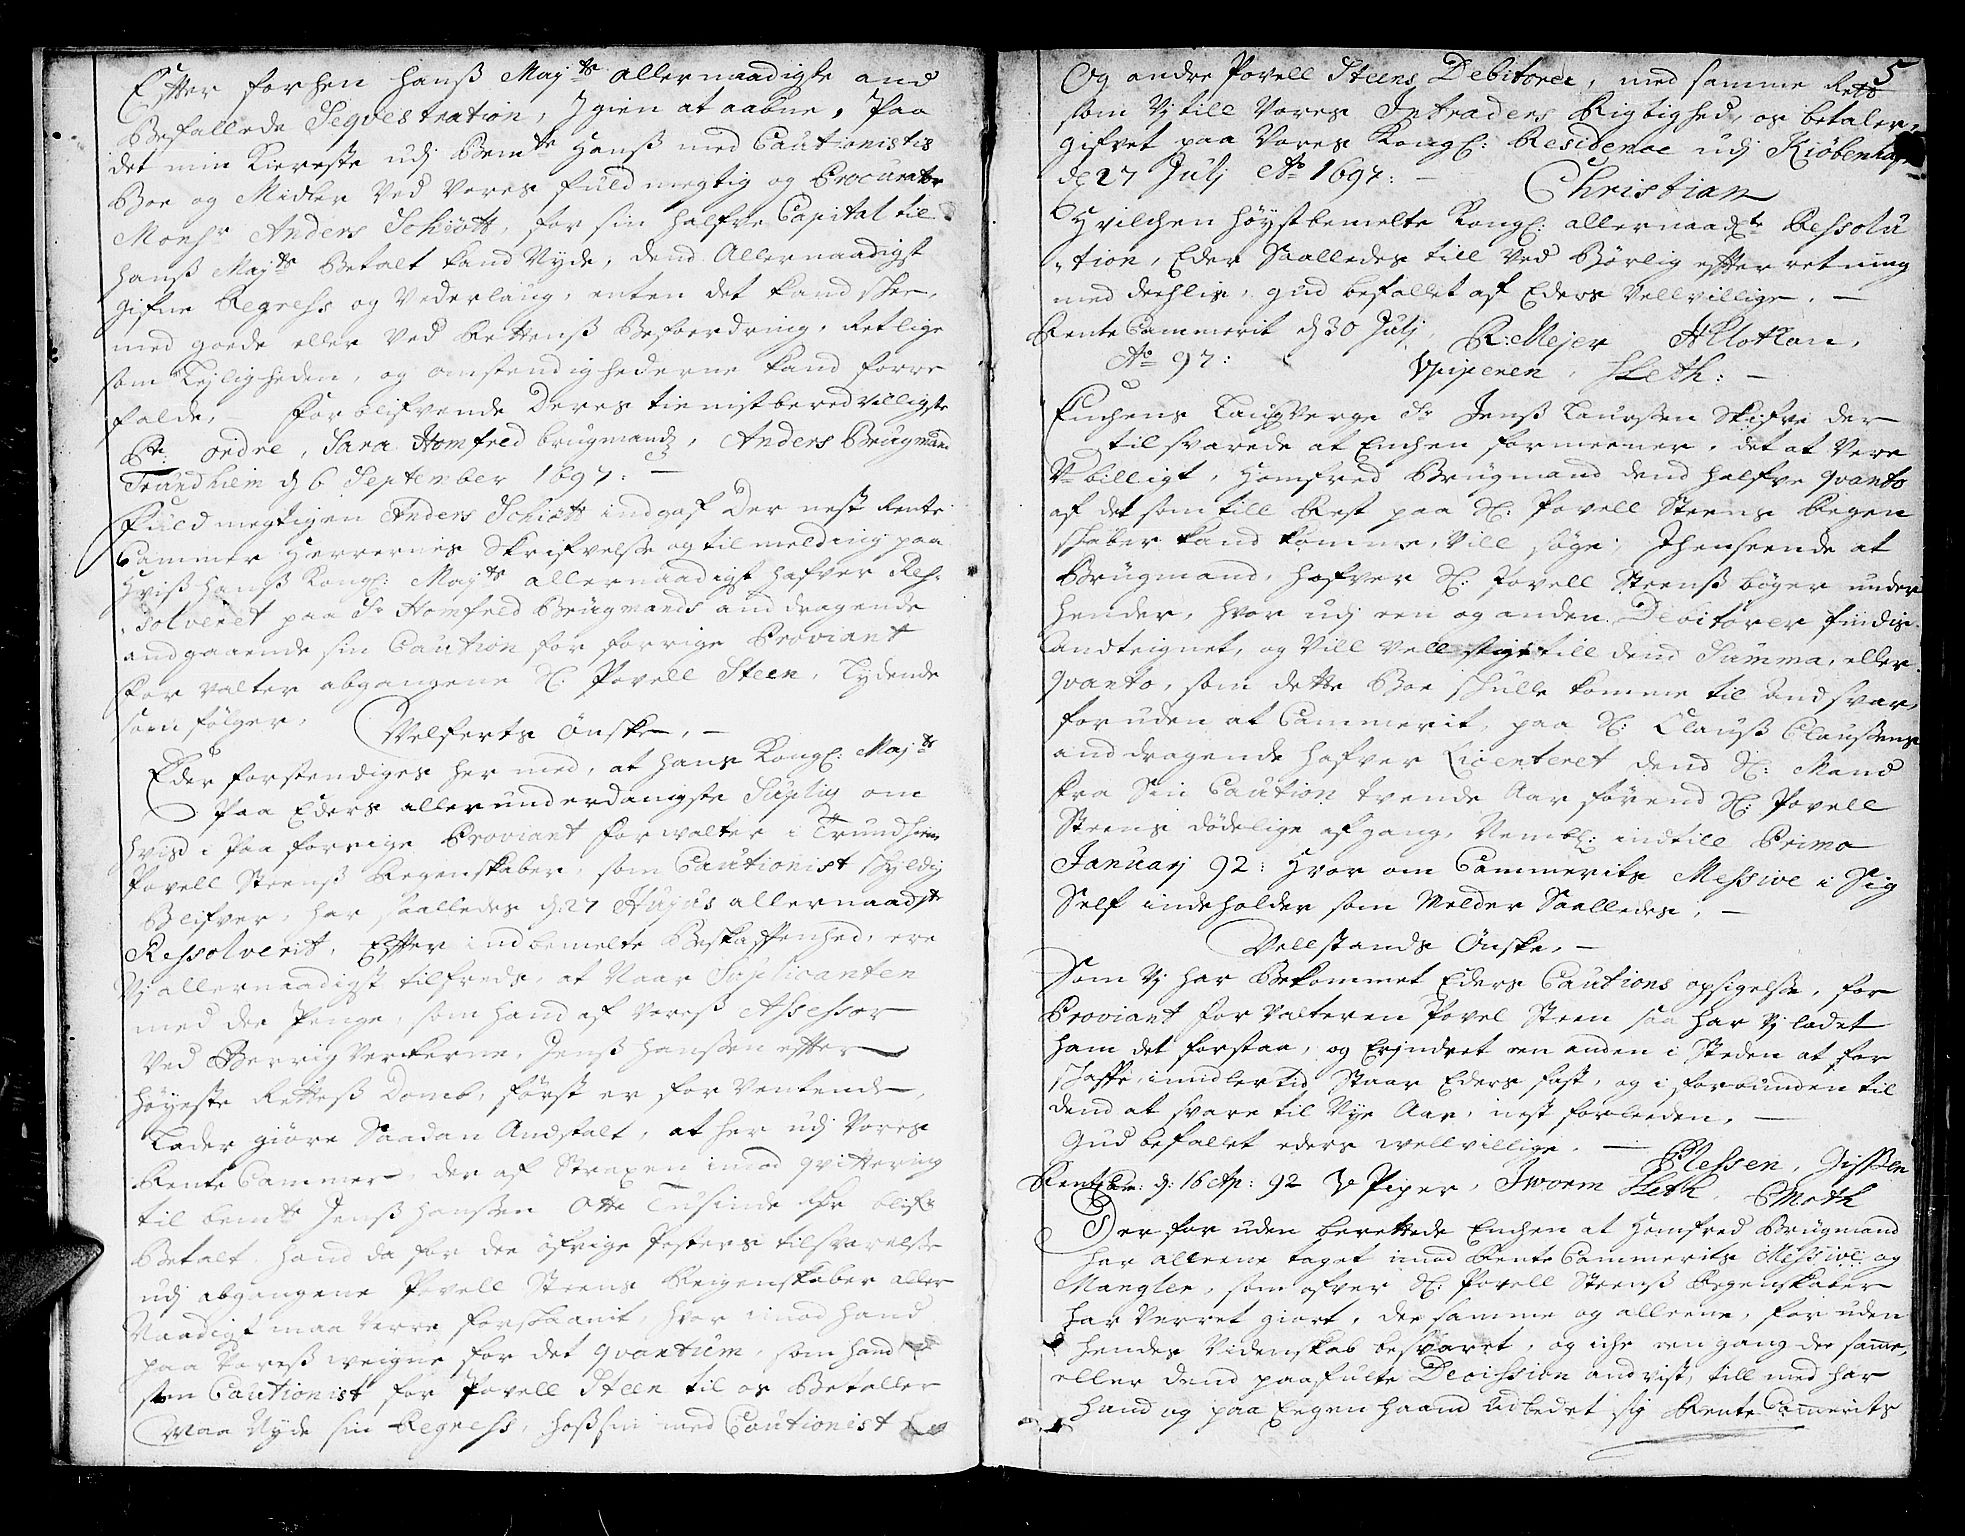 Efter forhen Hanß Mayts allernaadigte and
Befallede Seqvestration, Igien at aabne, Paa
det min Kiereste udj Bemte Hanß med Cautionistis
Boe og Midler Ved Vores fuldmegtig og Procurator
Monsr Anders Schiøtt, for sin halfve Capital til
hanß Mayts Betalt kand Nyde, dend Allernaadigst
gifne Regress og Vederlaug, enten det kand skee,
med goede eller Ved Rettenß Befordring, Retlige
som Lejligheden, og omstendighederne kand forre
falde, Forblifvende Deres tienistberedvilligste
Pr: ordre, Sara Homfred brugmandß, Anders Brugmand
Trundhiem d 6 September 1697:
Fuldmegtigen Anders Schiøtt indgaf Der nest Rente
Cammer Herrernes Skrifvelse og tilmelding paa
Hviß hanß Kongl: Mayts allernaadigst hafver Res-
solveret paa Sr Homfred Brugmands anddragende
andgaaende sin Caution for forrige Proviant
For valter abgangene Sl: Povell Steen, Lydende
som følger, Velferts Ønske,
Eder forstendiges her med, at hans Kongl: Mayts
Paa Eders allerunderdanigste Suplig om
hvis i paa forrige Proviant Forwalter i Trundhiem
Povell Steenß Regenskaber, som Cautionist skyldig
Blifver, har saalledes d: 27 Hujus allernaadste
Ressolverit, Efter indbemelte Beskaffenhed, ere
Vj allernaadigst tilfreds, at Naar Suplicanten
med dee Penge, som hand af Voreß Assessor
Ved Berrig Verkerne, Jenß Hanßen efter
høyeste Retteß Domb, først er for Ventende,
Lader giøre Saadan Andstalt, at her udj Vores
Rente Cammer, der af Straxen imod qvittering
til bemte Jenß Hanßen Otte Tusinde ... blifr
Betalt, hand da for dee øfrige Posters tilsvarelse
udj abgangene Povell Steens Regenskaber aller
Naadigst maa Verre forskaanit, hvor imod hand
paa Voreß weigne for det qvantum, som hand
som Cautionist for Povell Steen til os Betaller
Maa Nyde sin Regress, hoß sin med Cautionist
5
Og andre Povell Steens Debitorer, med samme Rett
som Vj till Vores Intraders Rigtighed, os betaler,
gifvet paa Vores Kongl: Residence udj Kiøbenhafn
d 27 Julj Ao 1697: Christian
Hvilchen høystbemelte Kongl: allernaadte Ressolu
-tion, Eder Saalledes till Ved Børlig efterretning
med deehlis, gud befallet af Eders Vellvillige,
Rente Cammerit d 30 Julj R: Mejer H Slottan,
Ao 97: V piperen, SLeth:
Enchens Laugverge Sr Jenß Laurssen Skifvi der
til svarede at Enchen formeener, det at Vere
V-billigt, Homfred Brugmand dend halfve qvanto
af det som till Rest paa Sl: Povell Steens Regen
skaber kand komme, Vill søge, I henseende at
Brugmand, hafver Sl: Povell Steenß bøger under
hender, hvor udj een og anden Debitorer findis
Andteignet, og Vill Vell stige till dend Summa, eller
qvanto, som dette Boe skulle komme til Andsvar,
for uden at Cammerit, paa Sl: Clauß Claußens
anddragende hafver Licenteret dend Sl: Mand
fra Sin Caution tvende Aar førend Sl: Povell
Steens dødelige afgang, Nembl: indtill Primo
Januarj 92: Hvor om Cammerits Messive i Sig
Self indeholder som Melder Saalledes,
Vellstands Ønske,
Som Vj har Bekommet Eders Cautions opsigelse, for
Proviant For Valteren Povel Steen saa har Vj ladet
ham det forstaa, og Erindret en anden i Steden at for
skaffe, imidlertid Staar Eders fast, og i forbunden til
dend at svare til Nye Aar, nest forleeden,
Gud befallet eders wellvillige, Plessen, Gissen
Rentebr: d: 16 Ap: 92 V Piper, Jworm SLeth, C Moth
Der for uden berettede Enchen at Homfred Brugmand
har alleene taget imod Rente Cammerits Messive og
Mangler, som ofver Sl: Povell Steenß Regenskaber
har Verret giort, dee samme og alleene, for uden
hendes Videnskab besvaret, og iche een gang dee same,
eller dend paafulte Decission andvist, till med har
hand og paa Eegen haand udbedet sig Rente Camerits